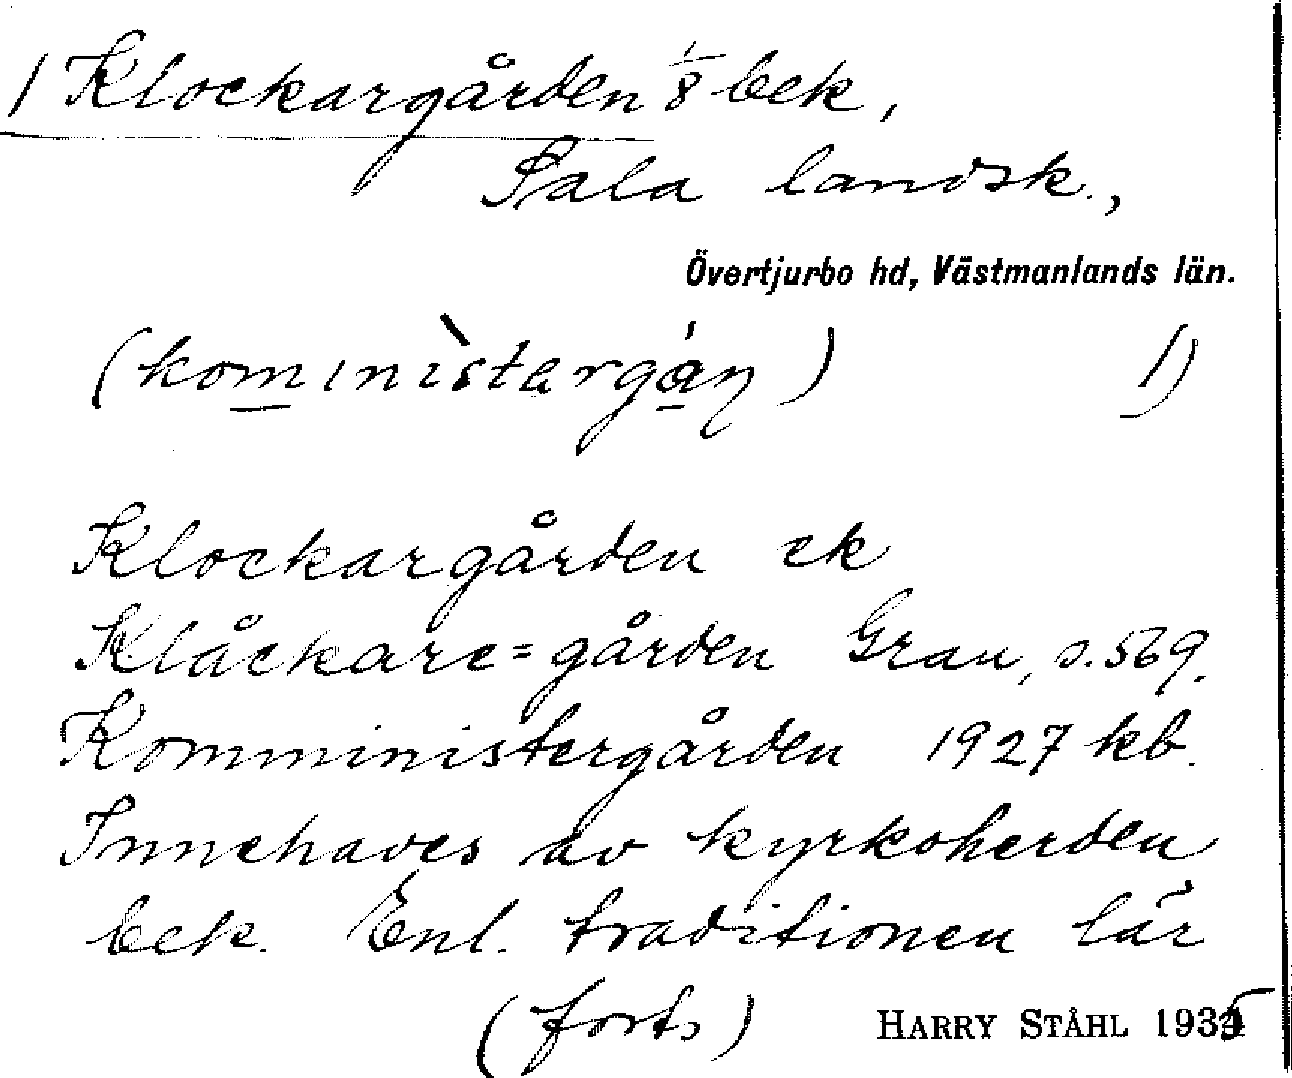 1 Klockargården 1/8 bek,
Sala landsk.,
Övertjurbo hd, Västmanlands län.
(kominìstargán) 1)
Klockargården ek
Klåckare=gården Grau, s. 569.
Komministergården 1927 kb.
Innehaves av kyrkoherden
bek. Enl. traditionen lär
(forts)
HARRY STÅHL 1935